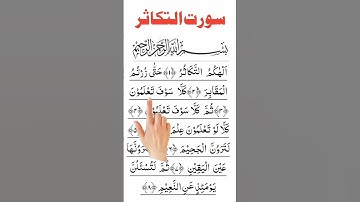 سورت التکاثر
بِسْمِ اللهِ الرَّحْمٰنِ الرَّحِيْمِ
اَلْهٰىكُمُ التَّكَاثُرُ ﴿۱﴾ حَتّٰى زُرْتُمُ
الْمَقَابِرَ ﴿۲﴾ كَلَّا سَوْفَ تَعْلَمُوْنَ
﴿۳﴾ ثُمَّ كَلَّا سَوْفَ تَعْلَمُوْنَ ﴿۴﴾
كَلَّا لَوْ تَعْلَمُوْنَ عِلْمَ ﴿۵﴾
لَتَرَوُنَّ الْجَحِيْمَ ﴿۶﴾
عَيْنَ الْيَقِيْنِ ﴿۷﴾ ثُمَّ لَتُسْئَلُنَّ
يَوْمَئِذٍ عَنِ النَّعِيْمِ ﴿۸﴾